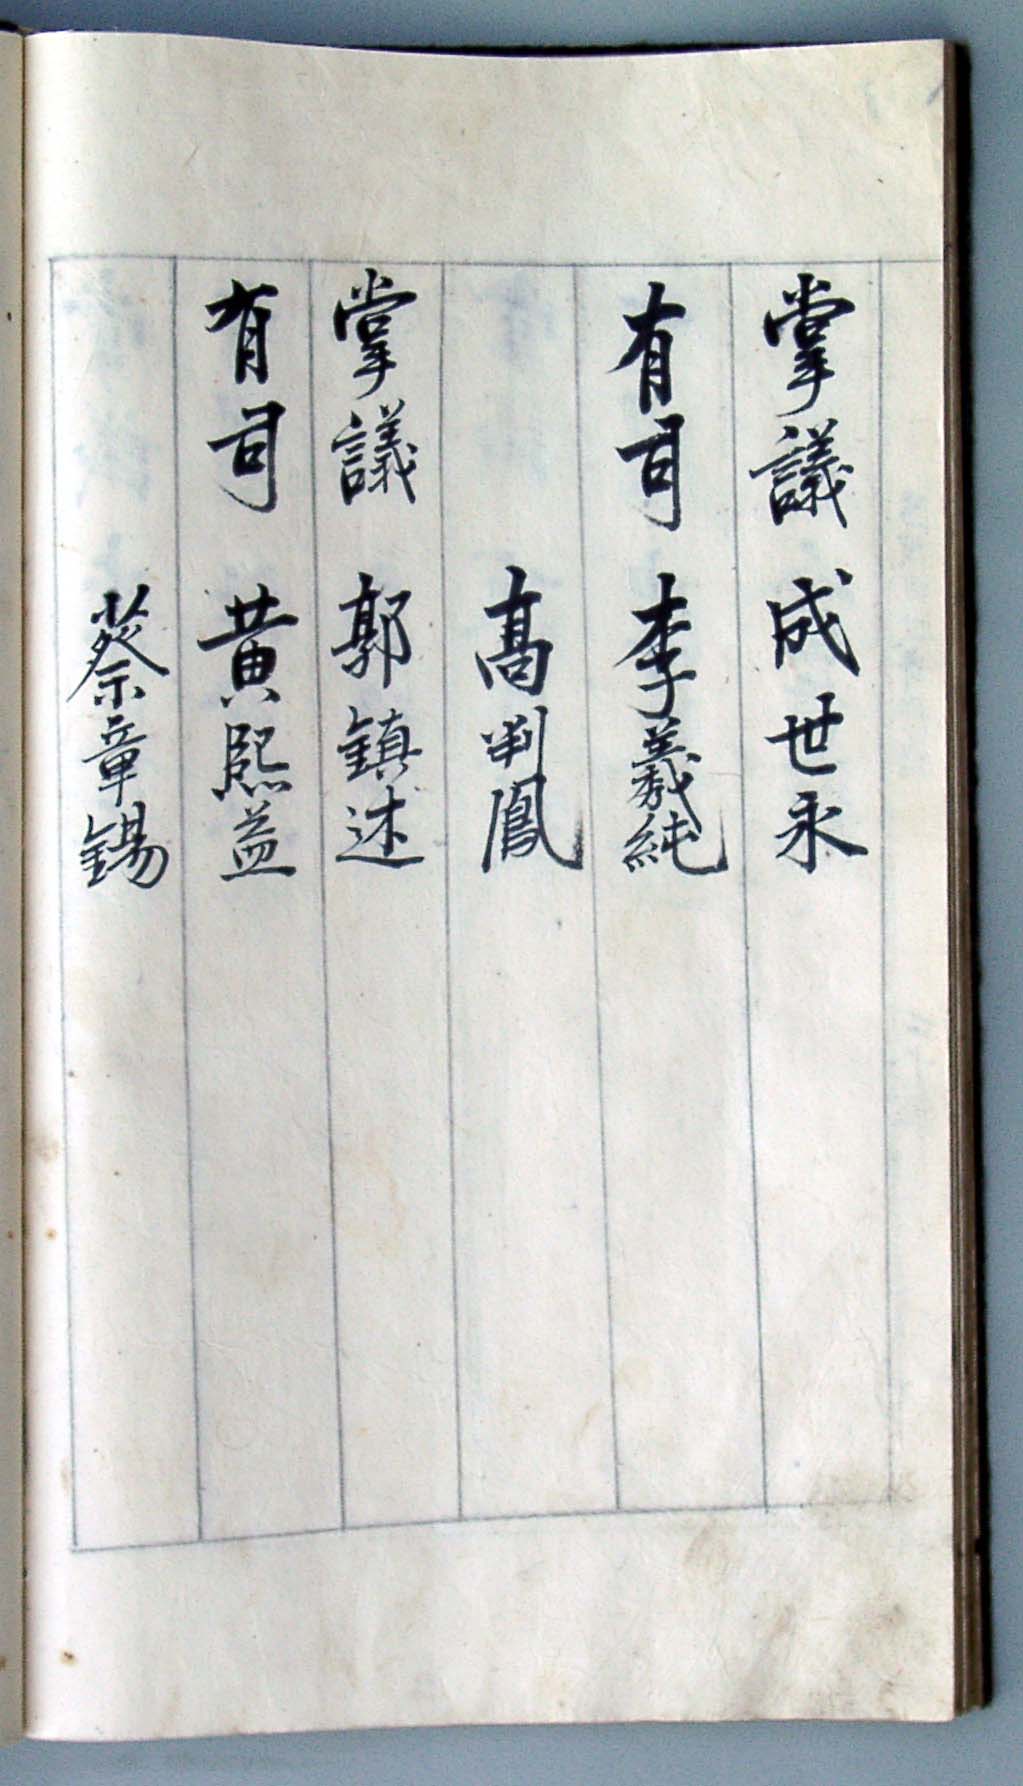 掌議 成世永
有司 李義純
高判鳳
掌議 郭鎮述
有司 黃熙益
蔡章錫